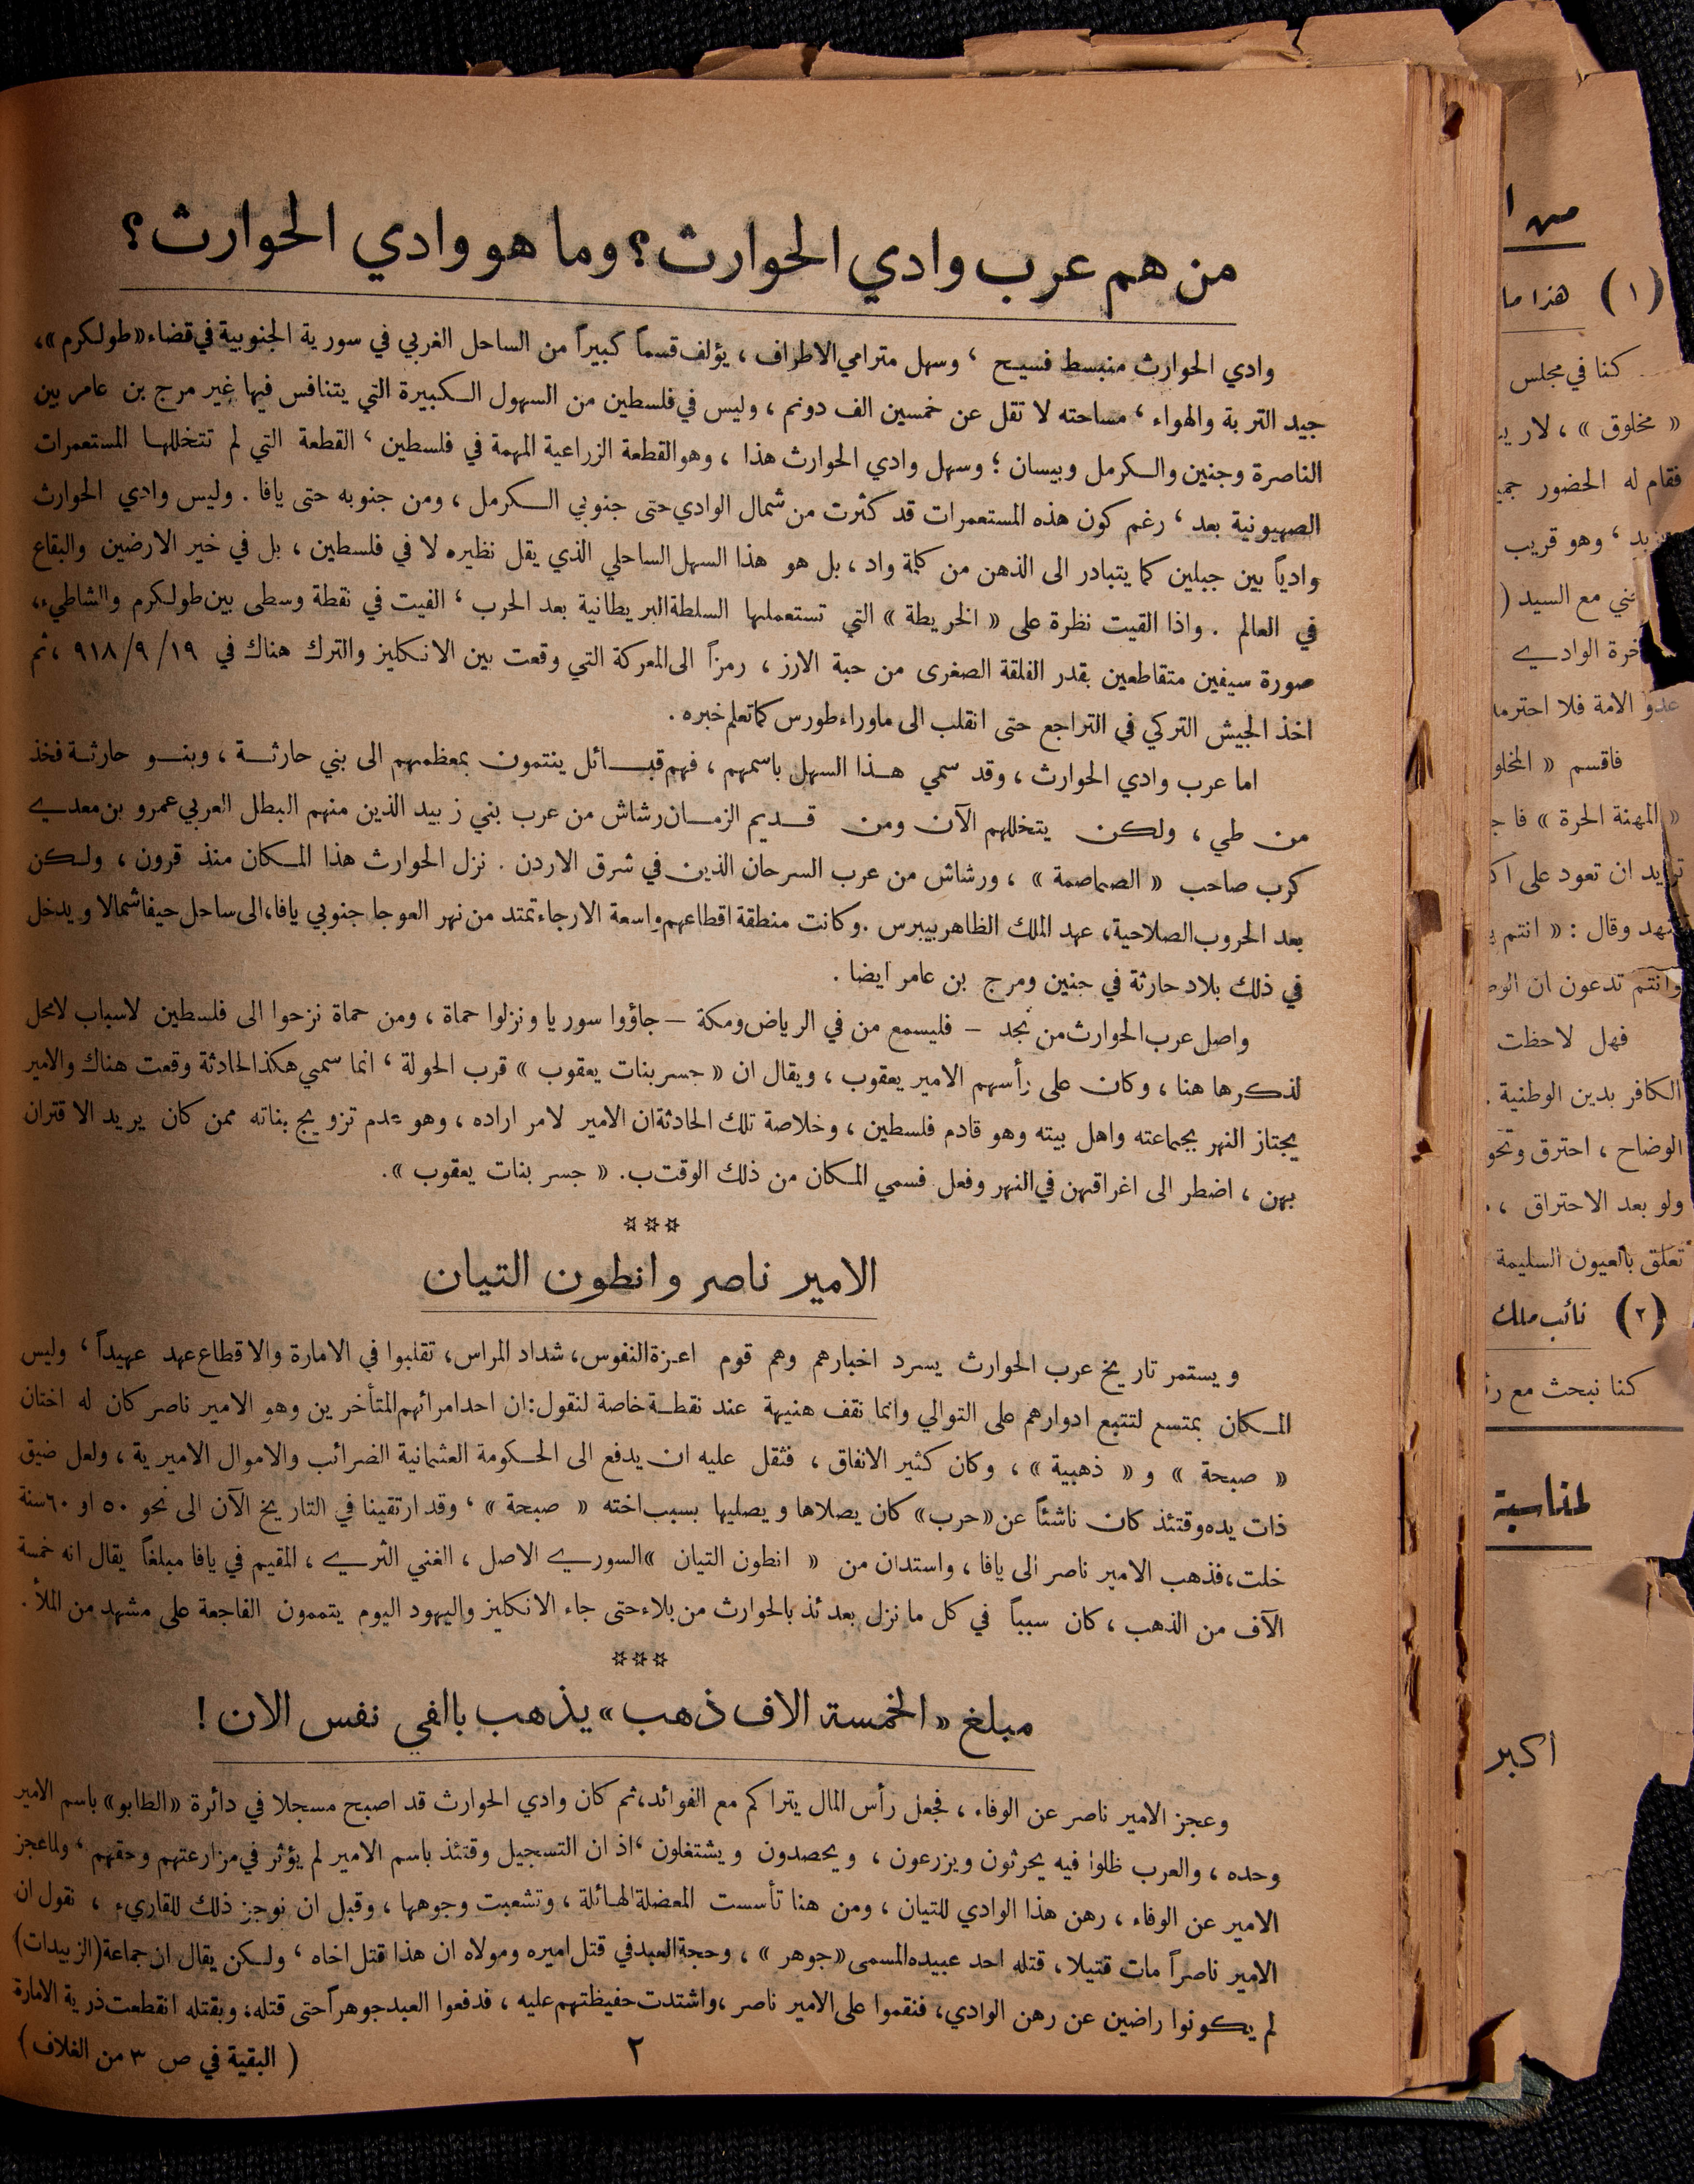 من هم عرب وادي الحوارث؟ وما هو وادي الحوارث؟
وادي الحوارث منبسط فسيح ، وسهل مترامي الاطراف ، يؤلف قسماً كبيراً من الساحل الغربي في سورية الجنوبية في قضاء «طولكرم»،
جيد التربة والهواء ، مساحته لا تقل عن خمسين الف دونم ، وليس في فلسطين من السهول الكبيرة التي يتنافس فيها غير مرج بن عامر بين
الناصرة وجنين والكرمل وبيسان ؛ وسهل وادي الحوارث هذا ، وهو القطعة الزراعية المهمة في فلسطين ، القطعة التي لم تتخللها المستعمرات
الصهيونية بعد ، رغم كون هذه المستعمرات قد كثرت من شمال الوادي حتى جنوبي الكرمل ، ومن جنوبه حتى يافا . وليس وادي الحوارث
وادياً بين جبلين كما يتبادر الى الذهن من كلمة واد ، بل هو هذا السهل الساحلي الذي يقل نظيره لا في فلسطين ، بل في خير الارضين والبقاع
في العالم . واذا القيت نظرة على « الخريطة » التي تستعملها السلطة البريطانية بعد الحرب ، الفيت في نقطة وسطى بين طولكرم والشاطيء،
صورة سيفين متقاطعين بقدر الفلقة الصغرى من حبة الارز ، رمزاً الى المعركة التي وقعت بين الانكليز والترك هناك في ١٩/ ٩ /٩١٨ ، ثم
اخذ الجيش التركي في التراجع حتى انقلب الى ماوراء طورس كما تعلم خبره .
اما عرب وادي الحوارث ، وقد سمي هذا السهل باسمهم ، فهم قبائل ينتمون بمعظمهم الى بني حارثة ، وبنو حارثة فخذ
من طي ، ولكن يتخللهم الآن ومن قديم الزمان رشاش من عرب بني زبيد الذين منهم البطل العربي عمرو بن معدي
كرب صاحب « الصماصمة » ، ورشاش من عرب السرحان الذين في شرق الاردن . نزل الحوارث هذا المكان منذ قرون ، ولكن
بعد الحروب الصلاحية، عهد الملك الظاهر بيبرس . وكانت منطقة اقطاعهم واسعة الارجاء تمتد من نهر العوجا جنوبي يافا، الى ساحل حيفا شمالا ويدخل
في ذلك بلاد حارثة في جنين ومرج بن عامر ايضا .
واصل عرب الحوارث من نجد – فليسمع من في الرياض ومكة – جاؤوا سوريا ونزلوا حماة ، ومن حماة نزحوا الى فلسطين لاسباب لا محل
لذكرها هنا ، وكان على رأسهم الامير يعقوب ، ويقال ان « جسر بنات يعقوب » قرب الحولة ، انما سمي هكذا لحادثة وقعت هناك والامير
يجتاز النهر بجماعته واهل بيته وهو قادم فلسطين ، وخلاصة تلك الحادثة ان الامير لامر اراده ، وهو عدم تزويج بناته ممن كان يريد الاقتران
بهن ، اضطر الى اغراقهن في النهر وفعل فسمي المكان من ذلك الوقت ب. « جسر بنات يعقوب ».
✡✡✡
الامير ناصر وانطون التيان
ويستمر تاريخ عرب الحوارث يسرد اخبارهم وهم قوم اعزة النفوس، شداد المراس، تقلبوا في الامارة والاقطاع عهد عهيداً ، وليس
المكان بمتسع لتتبع ادوارهم على التوالي وانما نقف هنيهة عند نقطة خاصة لنقول: ان احد امرائهم المتأخرين وهو الامير ناصر كان له اختان
« صبحة » و « ذهبية » ، وكان كثير الانفاق ، فثقل عليه ان يدفع الى الحكومة العثمانية الضرائب والاموال الاميرية ، ولعل ضيق
ذات يده وقتئذ كان ناشئاً عن «حرب» كان يصلاها ويصليها بسبب اخته « صبحة » ، وقد ارتقينا في التاريخ الآن الى نحو ٥٠ او ٦٠ سنة
خلت، فذهب الامير ناصر الى يافا ، واستدان من « انطون التيان » السوري الاصل ، الغني الثري ، المقيم في يافا مبلغاً يقال انه خمسة
الآف من الذهب ، كان سبباً في كل ما نزل بعدئذ بالحوارث من بلاء حتى جاء الانكليز واليهود اليوم يتممون الفاجعة على مشهد من الملأ .
✡✡✡
مبلغ « الخمسة الاف ذهب » يذهب بالفي نفس الان !
وعجز الامير ناصر عن الوفاء ، فجعل رأس المال يتراكم مع الفوائد، ثم كان وادي الحوارث قد اصبح مسجلا في دائرة «الطابو» باسم الامير
وحده ، والعرب ظلوا فيه يحرثون ويزرعون ، ويحصدون ويشتغلون ، اذ ان التسجيل وقتئذ باسم الامير لم يؤثر في مزارعتهم وحقهم ، ولما عجز
الامير عن الوفاء ، رهن هذا الوادي للتيان ، ومن هنا تأسست المعضلة الهائلة ، وتشعبت وجوهها ، وقبل ان نوجز ذلك للقاريء ، نقول ان
الامير ناصراً مات قتيلا ، قتله احد عبيده المسمى «جوهر » ، وحجة العبد في قتل اميره ومولاه ان هذا قتل اخاه ، ولكن يقال ان جماعة (الزبيدات)
لم يكونوا راضين عن رهن الوادي، فنقموا على الامير ناصر ، واشتدت حفيظتهم عليه ، فدفعوا العبد جوهراً حتى قتله، وبقتله انقطعت ذرية الامارة
٢
( البقية في ص ٣ من الغلاف )
من ا
( ١ ) هذا ما
كنا في مجلس
« مخلوق » ، لا ري
فقام له الحضور جمي
، وهو قريب
ني مع السيد (
خرة الوادي
عدو الامة فلا احترما
فاقسم « المخلو
« المهنة الحرة » فا ج
تريد ان تعود على اك
وقال : « انتم
وانتم تدعون ان الوط
فهل لاحظت
الكافر بدين الوطنية .
الوضاح ، احترق وتحو
ولو بعد الاحتراق ،
تعلق بالعيون السليمة
( ٢ ) نائب ملك
كنا نبحث مع رئ
لمناسبة
اكبر